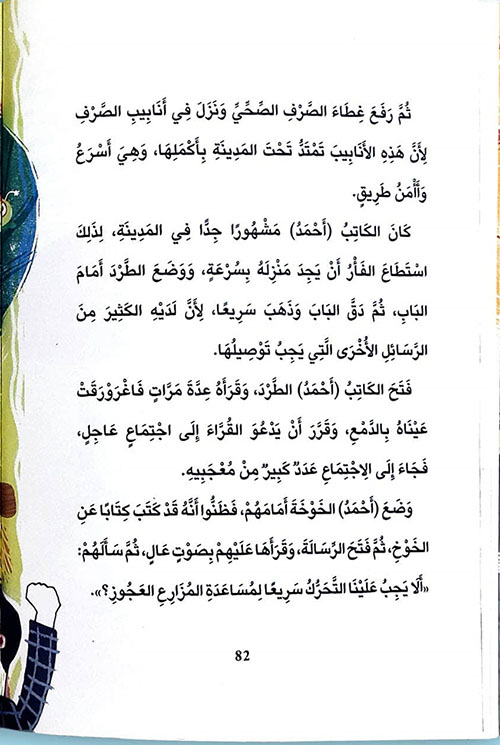 ثُمَّ رَفَعَ غِطَاءَ الصَّرْفِ الصِّحِّيِّ وَنَزَلَ فِي أَنَابِيبِ الصَّرْفِ
لِأَنَّ هَذِهِ الأَنَابِيبَ تَمْتَدُّ تَحْتَ المَدِينَةِ بِأَكْمَلِهَا، وَهِيَ أَسْرَعُ
وَأَأْمَنُ طَرِيقٍ.
كَانَ الكَاتِبُ (أَحْمَدُ) مَشْهُورًا جِدًّا فِي المَدِينَةِ، لِذَلِكَ
اسْتَطَاعَ الفَأْرُ أَنْ يَجِدَ مَنْزِلَهُ بِسُرْعَةٍ، وَوَضَعَ الطَّرْدَ أَمَامَ
البَابِ، ثُمَّ دَقَّ البَابَ وَذَهَبَ سَرِيعًا، لِأَنَّ لَدَيْهِ الكَثِيرَ مِنَ
الرَّسَائِلِ الأُخْرَى الَّتِي يَجِبُ تَوْصِيلُهَا.
فَتَحَ الكَاتِبُ (أَحْمَدُ) الطَّرْدَ، وَقَرَأَهُ عِدَّةَ مَرَّاتٍ فَاغْرَوْرَقَتْ
عَيْنَاهُ بِالدَّمْعِ، وَقَرَّرَ أَنْ يَدْعُوَ القُرَّاءَ إِلَى اجْتِمَاعٍ عَاجِلٍ،
فَجَاءَ إِلَى الِاجْتِمَاعِ عَدَدٌ كَبِيرٌ مِنْ مُعْجَبِيهِ.
وَضَعَ (أَحْمَدُ) الخَوْخَةَ أَمَامَهُمْ، فَظَنُّوا أَنَّهُ قَدْ كَتَبَ كِتَابًا عَنِ
الخَوْخِ، ثُمَّ فَتَحَ الرِّسَالَةَ، وَقَرَأَهَا عَلَيْهِمْ بِصَوْتٍ عَالٍ، ثُمَّ سَأَلَهُمْ:
«أَلَا يَجِبُ عَلَيْنَا التَّحَرُّكُ سَرِيعًا لِمُسَاعَدَةِ المُزَارِعِ العَجُوزِ؟».
82